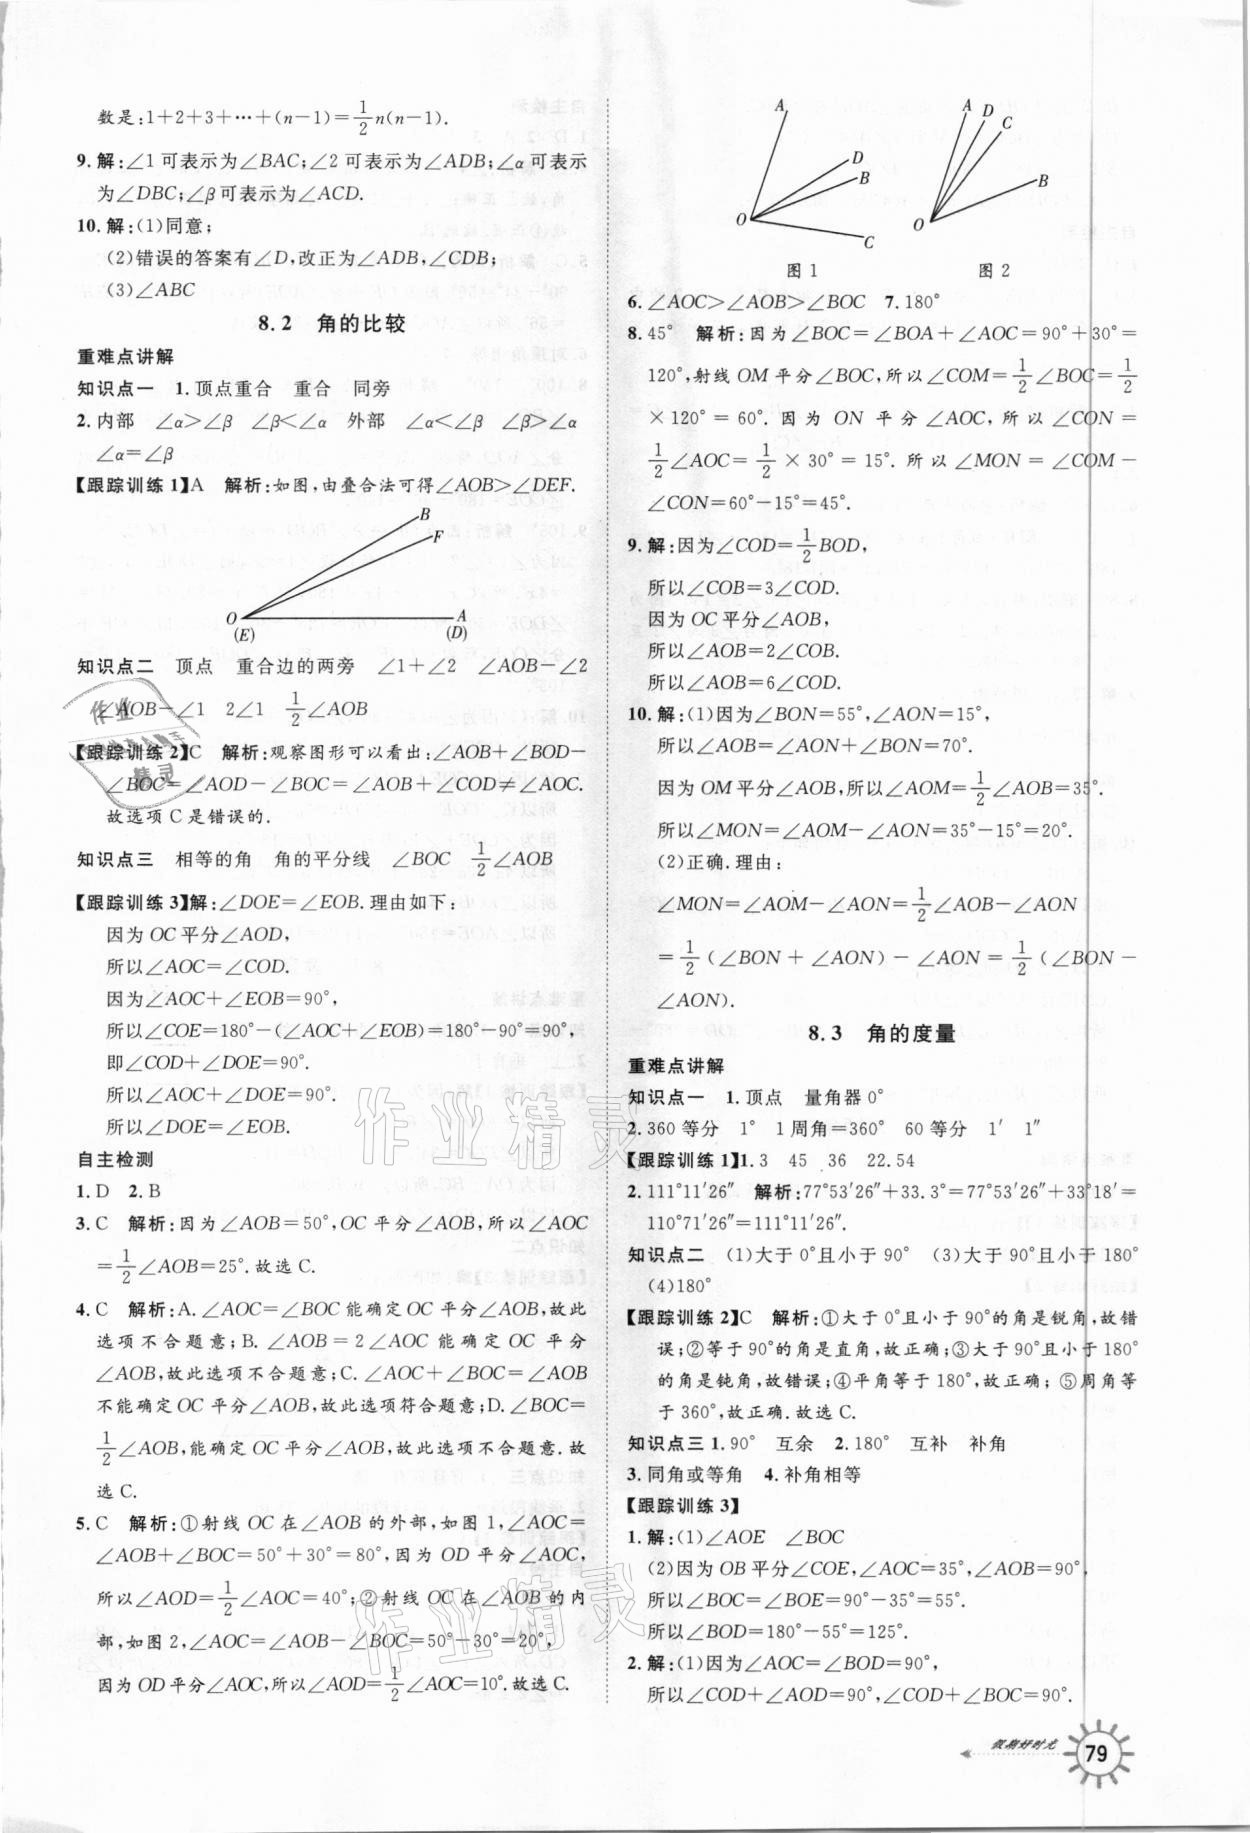 数是:1+2+3+…+(n-1)=1/2n(n-1).
9.解:∠1可表示为∠BAC;∠2可表示为∠ADB;∠α可表示
为∠DBC;∠β可表示为∠ACD.
10.解:(1)同意;
(2)错误的答案有∠D,改正为∠ADB,∠CDB;
(3)∠ABC
8.2 角的比较
重难点讲解
知识点一 1.顶点重合 重合 同旁
2.内部 ∠α>∠β ∠β<∠α 外部 ∠α<∠β ∠β>∠α
∠α=∠β
【跟踪训练1】A 解析:如图,由叠合法可得∠AOB>∠DEF.
B
F
O A
(E) (D)
知识点二 顶点 重合边的两旁 ∠1+∠2 ∠AOB-∠2
∠AOB-∠1 2∠1 1/2∠AOB
【跟踪训练2】C 解析:观察图形可以看出:∠AOB+∠BOD-
∠BOC=∠AOD-∠BOC=∠AOB+∠COD≠∠AOC.
故选项C是错误的.
知识点三 相等的角 角的平分线 ∠BOC 1/2∠AOB
【跟踪训练3】解:∠DOE=∠EOB.理由如下:
因为OC平分∠AOD,
所以∠AOC=∠COD.
因为∠AOC+∠EOB=90°,
所以∠COE=180°-(∠AOC+∠EOB)=180°-90°=90°,
即∠COD+∠DOE=90°.
所以∠AOC+∠DOE=90°.
所以∠DOE=∠EOB.
自主检测
1.D 2.B
3.C 解析:因为∠AOB=50°,OC平分∠AOB,所以∠AOC
=1/2∠AOB=25°.故选C.
4.C 解析:A.∠AOC=∠BOC能确定OC平分∠AOB,故此
选项不合题意;B.∠AOB=2∠AOC能确定OC平分
∠AOB,故此选项不合题意;C.∠AOC+∠BOC=∠AOB
不能确定OC平分∠AOB,故此选项符合题意;D.∠BOC=
1/2∠AOB,能确定OC平分∠AOB,故此选项不合题意.故
选C.
5.C 解析:①射线OC在∠AOB的外部,如图1,∠AOC=
∠AOB+∠BOC=50°+30°=80°,因为OD平分∠AOC,
所以∠AOD=1/2∠AOC=40°;②射线OC在∠AOB的内
部,如图2,∠AOC=∠AOB-∠BOC=50°-30°=20°,
因为OD平分∠AOC,所以∠AOD=1/2∠AOC=10°.故选C.
A
D
B
O
C
图1
A
D
C
B
O
图2
6.∠AOC>∠AOB>∠BOC 7.180°
8.45° 解析:因为∠BOC=∠BOA+∠AOC=90°+30°=
120°,射线OM平分∠BOC,所以∠COM=1/2∠BOC=1/2
×120°=60°.因为ON平分∠AOC,所以∠CON=
1/2∠AOC=1/2×30°=15°.所以∠MON=∠COM-
∠CON=60°-15°=45°.
9.解:因为∠COD=1/2BOD,
所以∠COB=3∠COD.
因为OC平分∠AOB,
所以∠AOB=2∠COB.
所以∠AOB=6∠COD.
10.解:(1)因为∠BON=55°,∠AON=15°,
所以∠AOB=∠AON+∠BON=70°.
因为OM平分∠AOB,所以∠AOM=1/2∠AOB=35°.
所以∠MON=∠AOM-∠AON=35°-15°=20°.
(2)正确.理由:
∠MON=∠AOM-∠AON=1/2∠AOB-∠AON
=1/2(∠BON+∠AON)-∠AON=1/2(∠BON-
∠AON).
8.3 角的度量
重难点讲解
知识点一 1.顶点 量角器0°
2.360等分 1° 1周角=360° 60等分 1′ 1″
【跟踪训练1】1.3 45 36 22.54
2.111°11′26″ 解析:77°53′26″+33.3°=77°53′26″+33°18′=
110°71′26″=111°11′26″.
知识点二 (1)大于0°且小于90° (3)大于90°且小于180°
(4)180°
【跟踪训练2】C 解析:①大于0°且小于90°的角是锐角,故错
误;②等于90°的角是直角,故正确;③大于90°且小于180°
的角是钝角,故错误;④平角等于180°,故正确;⑤周角等
于360°,故正确.故选C.
知识点三 1.90° 互余 2.180° 互补 补角
3.同角或等角 4.补角相等
【跟踪训练3】
1.解:(1)∠AOE ∠BOC
(2)因为OB平分∠COE,∠AOC=35°,∠AOB=90°,
所以∠BOC=∠BOE=90°-35°=55°.
所以∠BOD=180°-55°=125°.
2.解:(1)因为∠AOC=∠BOD=90°,
所以∠COD+∠AOD=90°,∠COD+∠BOC=90°.
假期好时光
79
作业精灵
作业精灵
作业
精灵